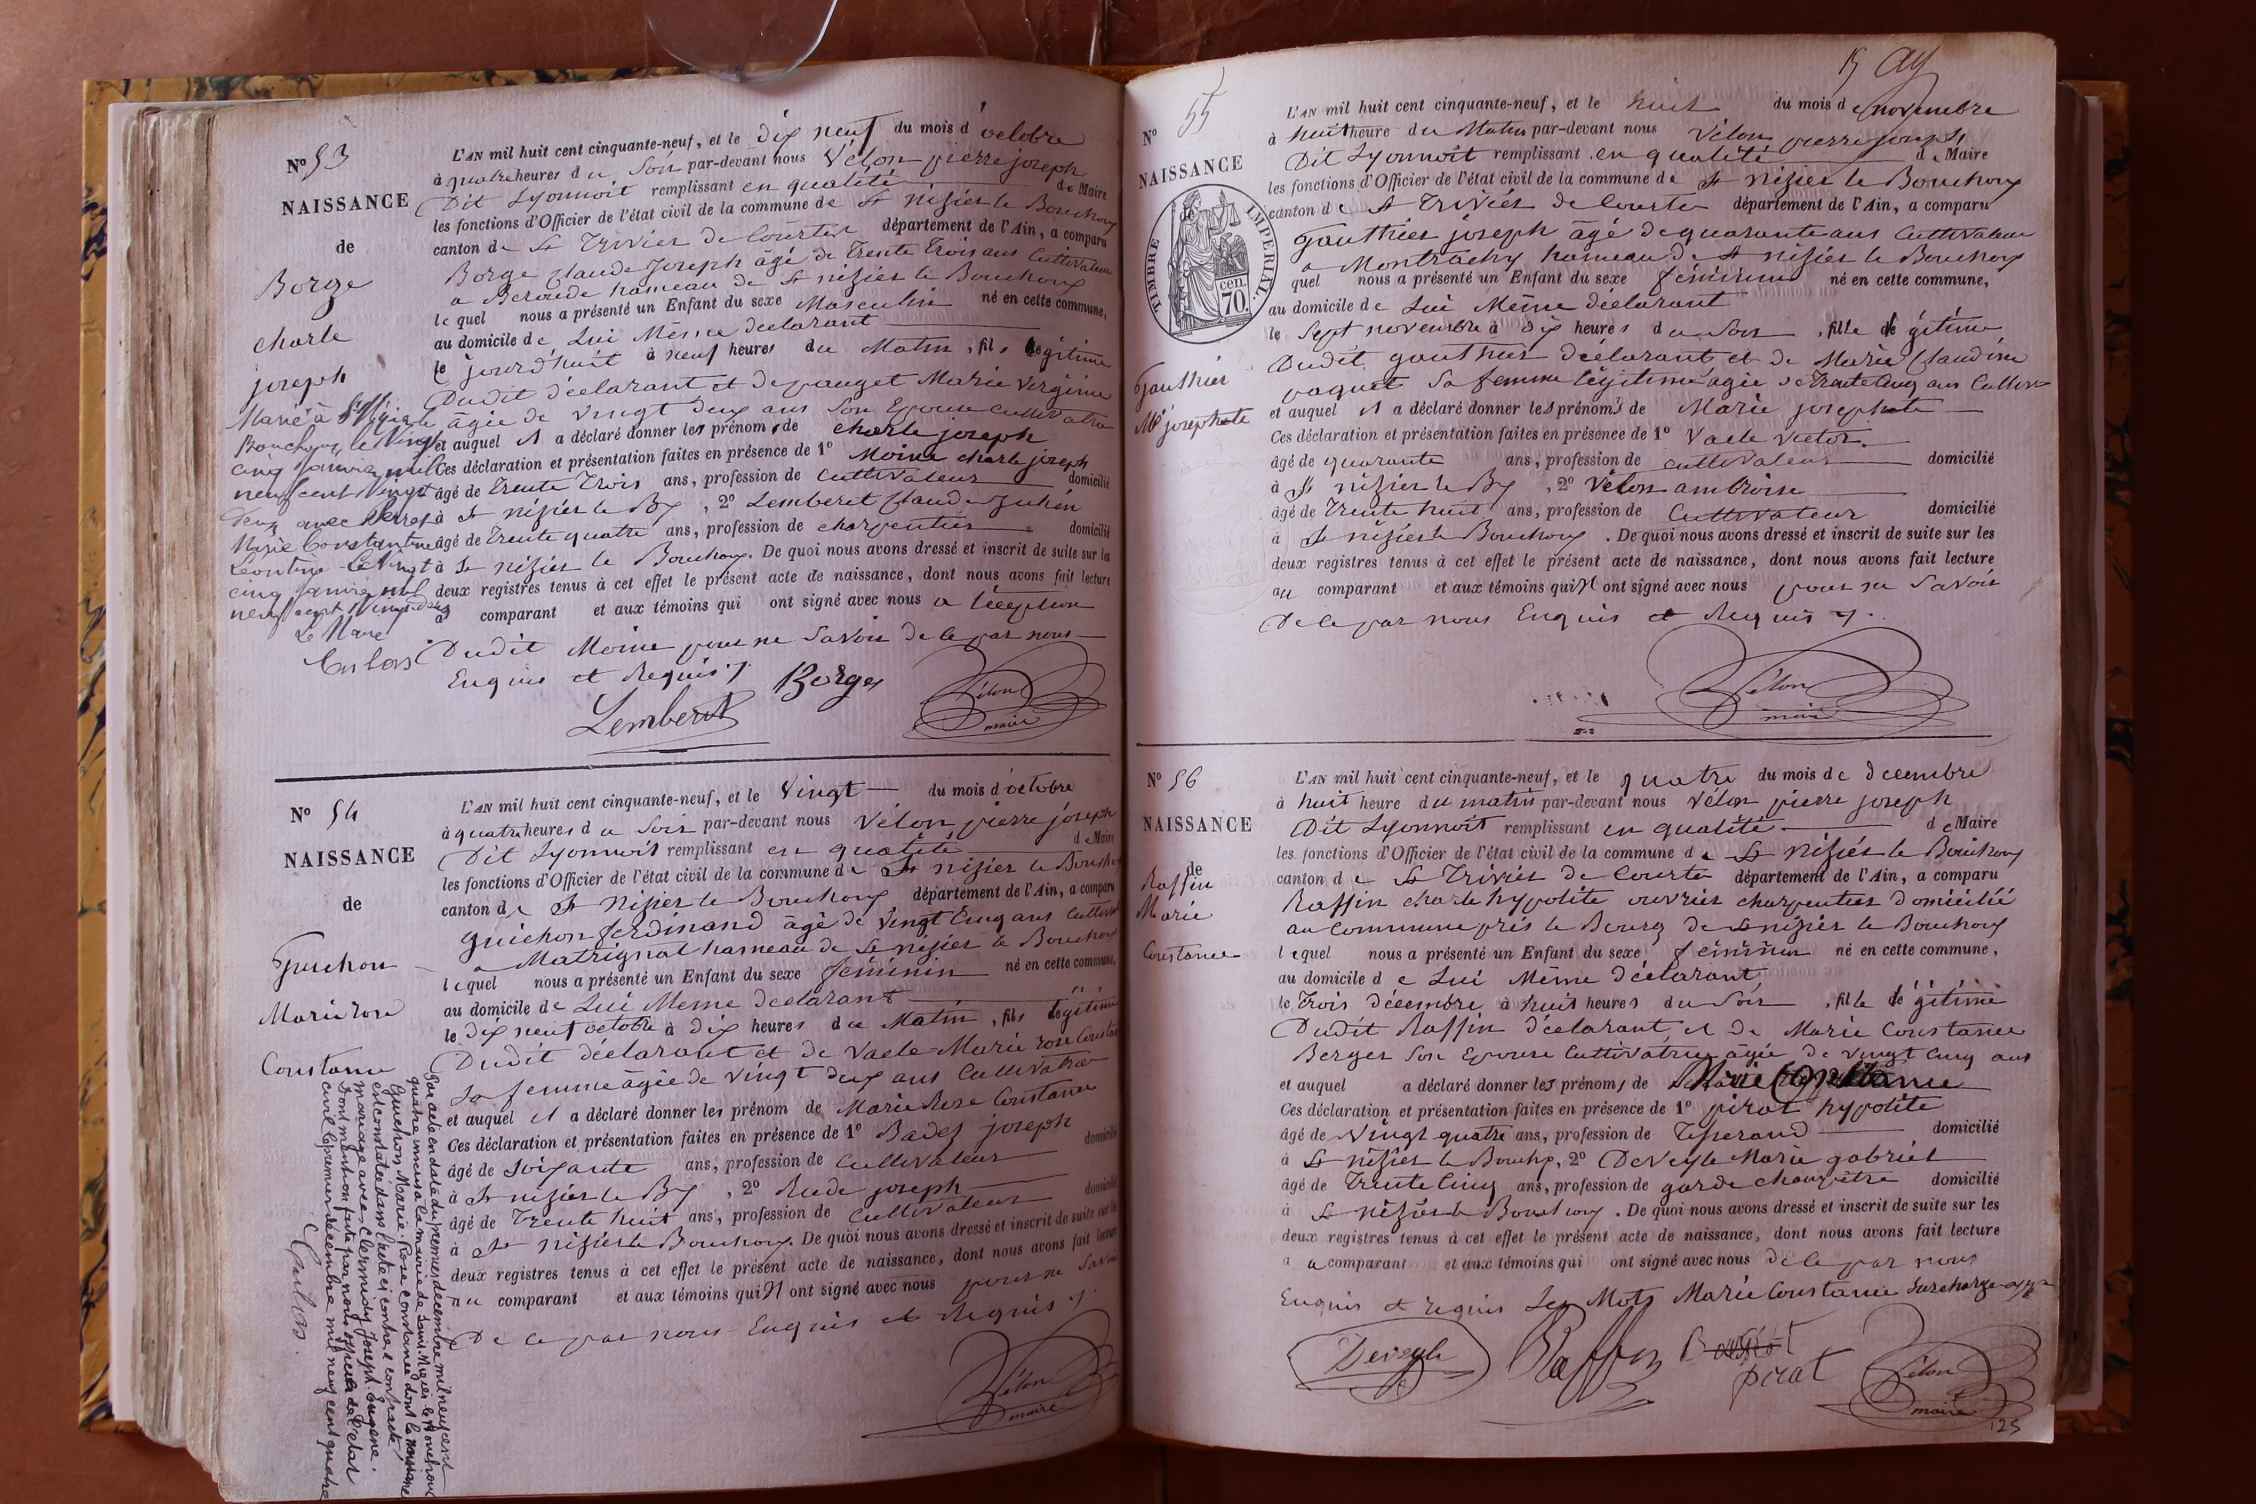 N° 53
NAISSANCE
de
Borge
charle
joseph
Marié à St Nizier le
Bouchoux, le vingt
cinq janvier mil
neuf cent vingt
deux avec
Marie Constantine
Léontine Le vingt
cinq janvier mil
neuf cent vingt deux
Le Maire
L'AN mil huit cent cinquante-neuf, et le dix neuf du mois d'octobre
à quatre heures du Soir par-devant nous Vélon pierre joseph
Dit Lyonnoit remplissant en qualité de Maire
les fonctions d'Officier de l'état civil de la commune de St nizier le Bouchoux
canton de St Trivier de Courtes département de l'Ain, a comparu
Borge Claude Joseph âgé de Trente Trois ans Cultivateur
a Beroude hameau de St nizier le Bouchoux
lequel nous a présenté un Enfant du sexe Masculin né en cette commune,
au domicile de Lui Même déclarant
le jourd'huit à neuf heures du Matin, fils légitime
Dudit déclarant et de pauget Marie Vergine
âgée de vingt deux ans Son Epouse Cultivatrice
et auquel Il a déclaré donner les prénoms de charle joseph
Ces déclaration et présentation faites en présence de 1° Moine charle joseph
âgé de Trente Trois ans, profession de Cultivateur domicilié
à St nizier le Bx, 2° Lemberet Claude Julien
âgé de Trente quatre ans, profession de charpentier domicilié
à St nizier le Bouchoux. De quoi nous avons dressé et inscrit de suite sur les
deux registres tenus à cet effet le présent acte de naissance, dont nous avons fait lecture
au comparant et aux témoins qui ont signé avec nous a l'éception
Dudit Moine pour ne Savoir de ce par nous
Enquis et Requis
Lemberet Borges Vélon
maire
N° 54
NAISSANCE
de
Guichon
Marie rose
Constance
Par acte en date du premier décembre mil neuf cent
quatre inscrit à la mairie de Saint-Nizier le Bouchoux
Guichon Marie-Rose Constance dont la naissance
est constatée dans l'acte ci contre a contracté
mariage avec Clermidy Joseph-Eugène.
Dont mention faite par nous officier de l'état
civil le premier décembre mil neuf cent quatre
L'AN mil huit cent cinquante-neuf, et le Vingt du mois d'octobre
à quatre heures du Soir par-devant nous Vélon pierre joseph
Dit Lyonnoit remplissant en qualité de Maire
les fonctions d'Officier de l'état civil de la commune de St nizier le Bouchoux
canton de St Nizier le Bouchoux département de l'Ain, a comparu
Guichon ferdinand âgé de Vingt Cinq ans Cultivateur
a Matrignat hameau de St nizier le Bouchoux
lequel nous a présenté un Enfant du sexe féminin né en cette commune,
au domicile de Lui Même déclarant
le dix neuf octobre à dix heures du Matin, fille légitime
Dudit déclarant et de Vacle Marie rose Constance
Sa femme âgée de vingt deux ans Cultivatrice
et auquel Il a déclaré donner les prénom de Marie Rose Constance
Ces déclaration et présentation faites en présence de 1° Badez joseph
âgé de soixante ans, profession de Cultivateur domicilié
à St nizier le Bx, 2° Rude joseph
âgé de Trente huit ans, profession de Cultivateur domicilié
à St nizier le Bouchoux. De quoi nous avons dressé et inscrit de suite sur les
deux registres tenus à cet effet le présent acte de naissance, dont nous avons fait lecture
au comparant et aux témoins qui N ont signé avec nous pour ne Savoir
De ce par nous Enquis et Requis
Vélon
maire
N° 55
NAISSANCE
TIMBRE IMPERIAL
70 cen.
Gauthier
Mie josephete
L'AN mil huit cent cinquante-neuf, et le huit du mois de novembre
à huit heure du Matin par-devant nous Vélon pierre joseph
Dit Lyonnoit remplissant en qualité de Maire
les fonctions d'Officier de l'état civil de la commune de St nizier le Bouchoux
canton de St Trivier de Courtes département de l'Ain, a comparu
Gauthier joseph âgé de quarante ans Cultivateur
a Montrachy hameau de St nizier le Bouchoux
quel nous a présenté un Enfant du sexe féminin né en cette commune,
au domicile de Lui Même déclarant
le Sept novembre à dix heures du Soir, fille légitime
Dudit gauthier déclarant et de Marie Claudine
paquet Sa femme légitime âgée de Trente Cinq ans Cultivr
et auquel Il a déclaré donner les prénoms de Marie josephete
Ces déclaration et présentation faites en présence de 1° Vacle victor
âgé de quarante ans, profession de cultivateur domicilié
à St nizier le Bx, 2° Vélon ambroise
âgé de Trente huit ans, profession de Cultivateur domicilié
à St nizier le Bouchoux. De quoi nous avons dressé et inscrit de suite sur les
deux registres tenus à cet effet le présent acte de naissance, dont nous avons fait lecture
au comparant et aux témoins qui N ont signé avec nous pour ne Savoir
De ce par nous Enquis et Requis
Vélon
maire
N° 56
NAISSANCE
de
Raffin
Marie
Constance
L'AN mil huit cent cinquante-neuf, et le quatre du mois de decembre
à huit heure du matin par-devant nous Vélon pierre joseph
Dit Lyonnoit remplissant en qualité de Maire
les fonctions d'Officier de l'état civil de la commune de St nizier le Bouchoux
canton de St Trivier de Courtes département de l'Ain, a comparu
Raffin charle hypolite ouvrier charpentier domicilié
au Commune près le Bourg de St nizier le Bouchoux
lequel nous a présenté un Enfant du sexe féminin né en cette commune,
au domicile de Lui Même déclarant
le Trois décembre à huit heures du Soir, fille légitime
Dudit Raffin déclarant et de Marie Constance
Berger Son Epouse Cultivatrice âgée de vingt Cinq ans
et auquel a déclaré donner les prénoms de Marie Constance
Ces déclaration et présentation faites en présence de 1° pirat hypolite
âgé de Vingt quatre ans, profession de Tisserand domicilié
à St nizier le Boucho, 2° Deveyle Marie gabriel
âgé de Trente Cinq ans, profession de garde champêtre domicilié
à St nizier le Bouchoux. De quoi nous avons dressé et inscrit de suite sur les
deux registres tenus à cet effet le présent acte de naissance, dont nous avons fait lecture
au comparant et aux témoins qui ont signé avec nous de ce par nous
Enquis et requis Les Mots Marie Constance Surcharge
Deveyle Raffin pirat Vélon
maire
125